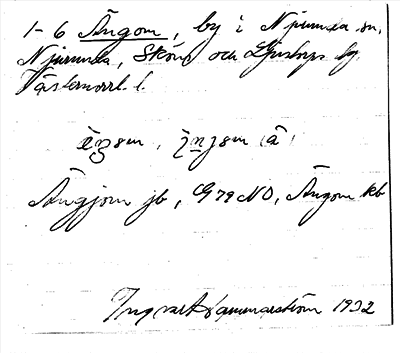 1-6 Ängom, by i Njurunda sn,
Njurunda, Sköns och Ljustorps tg.
Västernorrl. l.
Ängjom jb, G 79 NO, Ängom kb
Ingvar Hammarström 1932